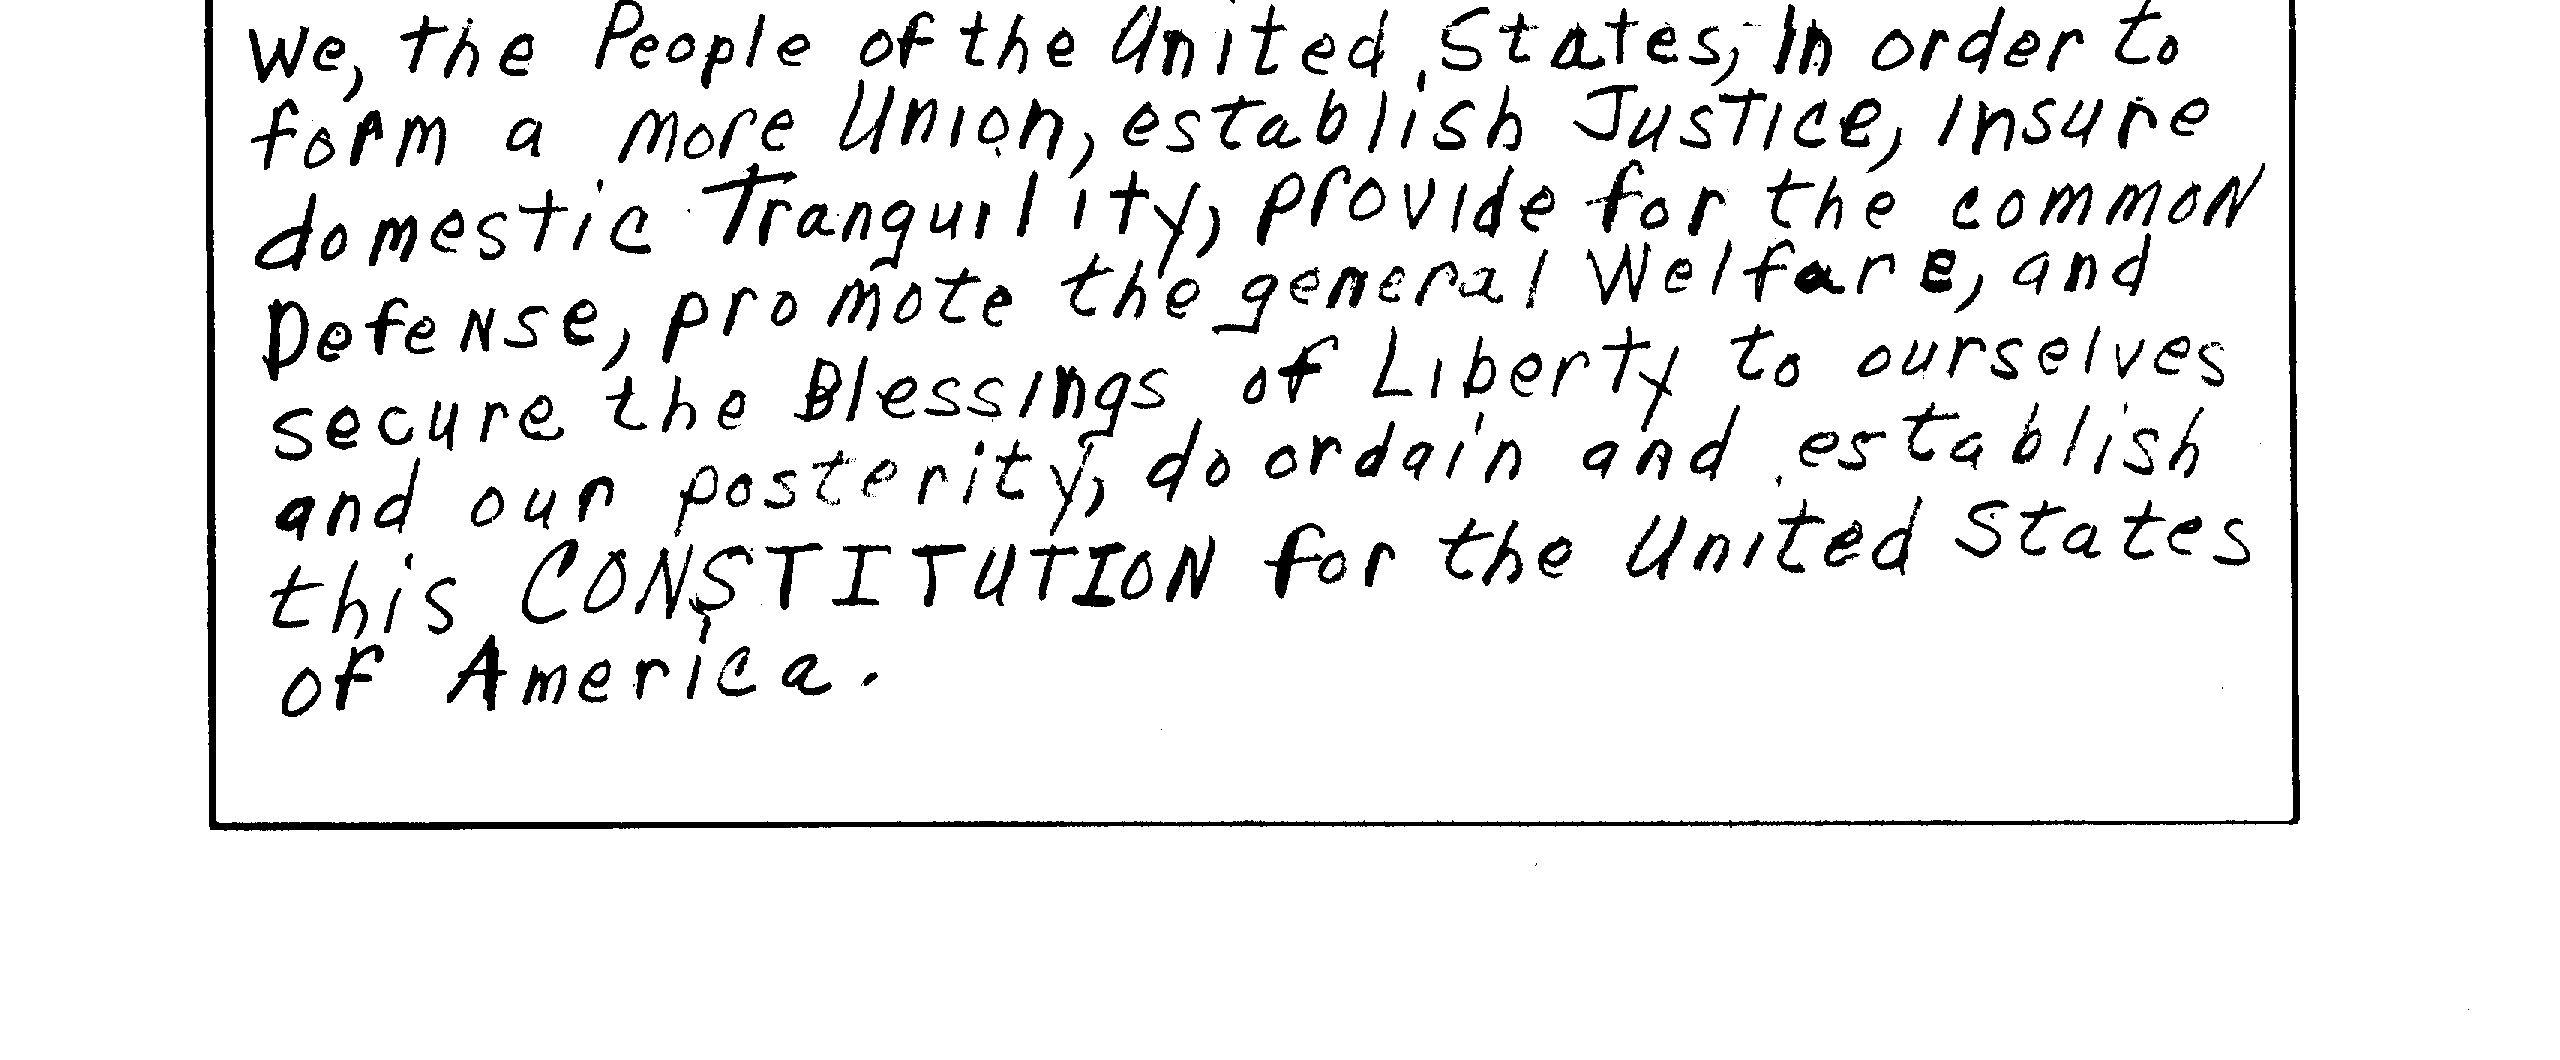 We, the People of the United States, In order to
form a more Union, establish Justice, insure
domestic Tranquility, provide for the common
Defense, promote the general Welfare, and
secure the Blessings of Liberty to ourselves
and our posterity, do ordain and establish
this CONSTITUTION for the United States
of America.